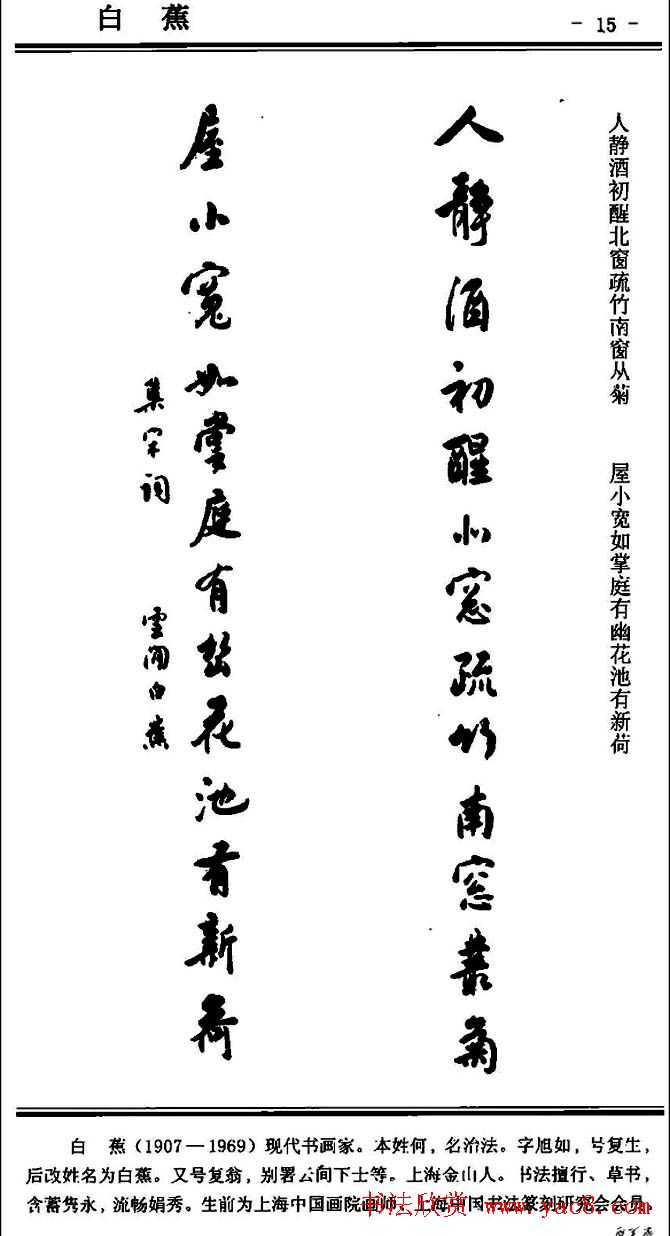 白 蕉
- 15 -
人静酒初醒北窗疏竹南窗从菊
屋小宽如掌庭有幽花池有新荷
人静酒初醒北窓疏竹南窓叢菊
屋小寬如掌庭有幽花池有新荷
集宋词
雲间白蕉
白 蕉（1907—1969）现代书画家。本姓何，名治法。字旭如，号复生，
后改姓名为白蕉。又号复翁，别署云间下士等。上海金山人。书法擅行、草书，
含蓄隽永，流畅娟秀。生前为上海中国画院画师、上海中国书法篆刻研究会会员。
书法欣赏 www.yac8.com